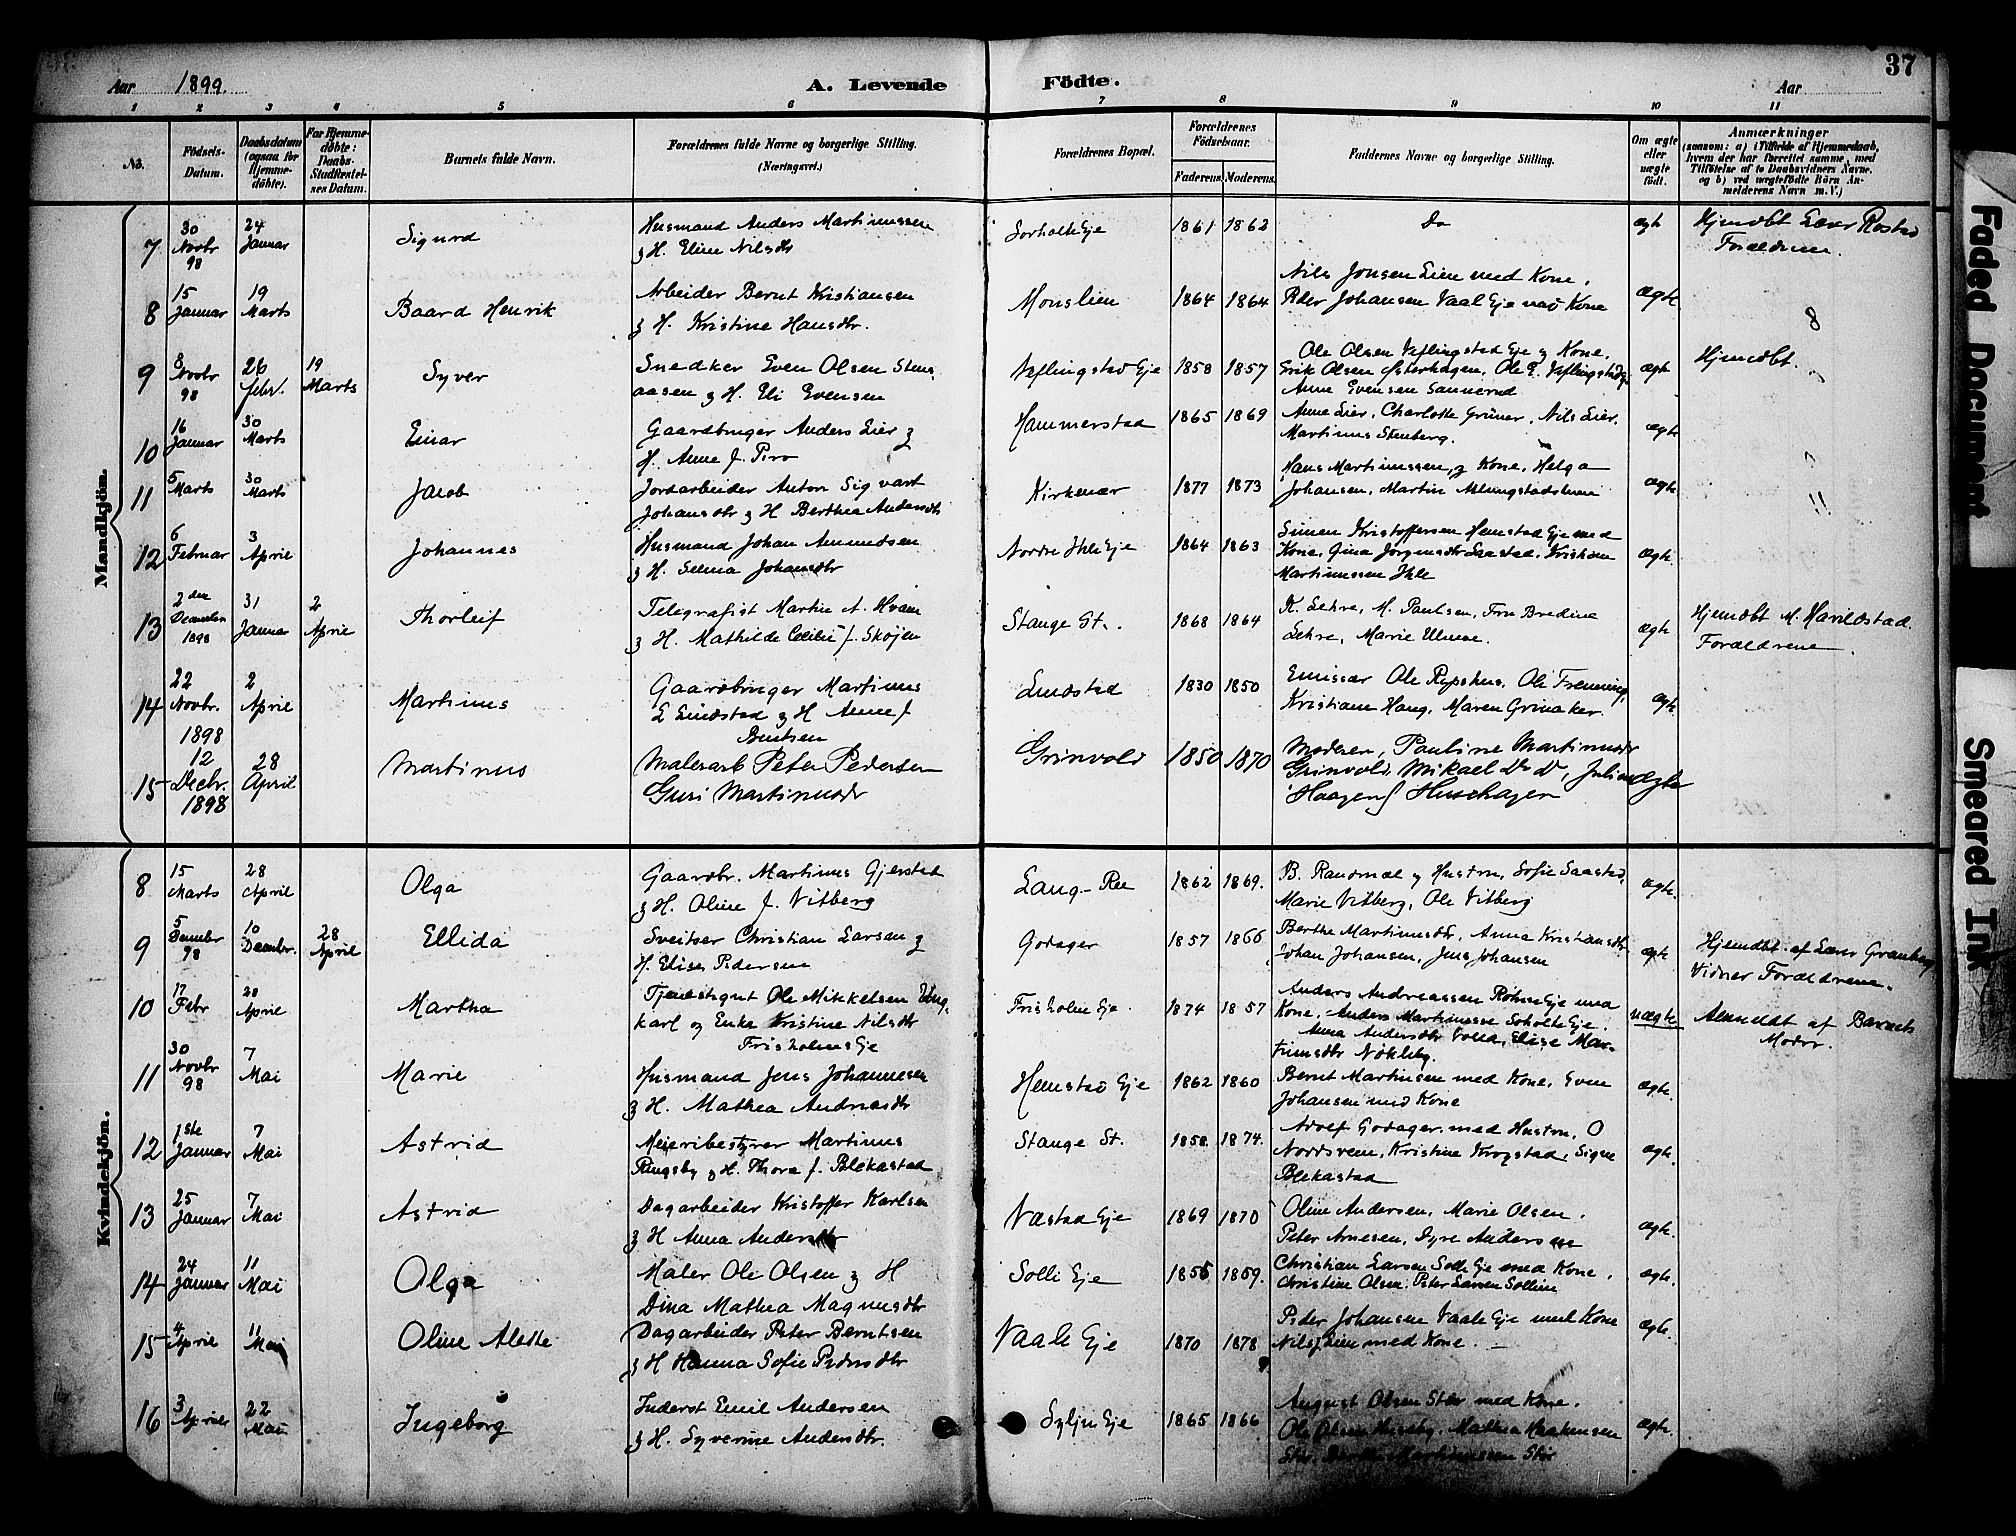 37
Aar 1899.
A. Levende Födte.
Aar
1 2 3 4 5 6 7 8 9 10 11
No.
Födsels-Datum.
Daabsdatum (ogsaa for Hjemme-döbte).
For Hjemme-döbte: Daabs-Stadfæstel-ses Datum.
Barnets fulde Navn.
Forældrenes fulde Navne og borgerlige Stilling. (Næringsvei.)
Forældrenes Bopæl.
Forældrenes Födselsaar.
Faderens. Moderens.
Faddernes Navne og borgerlige Stilling.
Om ægte eller uægte födt.
Anmærkninger
(saasom: a) i Tilfælde af Hjemmedaab, hvem der har forrettet samme, med Tilföielse af to Daabsvidners Navne, og b) ved uægtefödte Börn An-melderens Navn m. V.)
Mandkjön.
7
30 Novbr 98
24 Januar
Sigurd
Husmand Anders Martinussen
& H. Eline Nilsdtr
Sorholte Eje
1861 1862
Do
ægte
Hjemdbt Lærer Rostad
Forældrene.
8
15 Januar
19 Marts
Baard Henrik
Arbeider Bernt Kristiansen
& H. Kristine Hansdtr.
Monslien
1864 1864
Nils Jonsen Lien med Kone,
Peder Johansen Vaal Eje med Kone
ægte
8
9
8 Novbr 98
26 Febr.
19 Marts
Syver
Snedker Even Olsen Sten-
aasen & H. Eli Evensen
Væflingstad Eje
1858 1857
Ole Olsen Væflingstad Eje & Kone,
Erik Olsen Østerhagen, Ole E. Væflingstad
Anne Evensen Sannerud
ægte
Hjemdbt.
10
16 Januar
30 Marts
Einar
Gaardbruger Anders Lier &
H. Anne f. Piro
Hammerstad
1865 1869
Anne Lier, Charlotte Grüner, Nils Lier,
Martinus Stenberg.
ægte
11
5 Marts
30 Marts
Jacob
Jordarbeider Anton Sigvart
Johansdtr & H Berthea Andersdtr
Kirkenær
1877 1873
Hans Martinussen & Kone, Helga
Johansen, Martin
ægte
12
6 Februar
3 April
Johannes
Husmand Johan Amundsen
& H. Selma Johansdtr
Nordre Ihle Eje
1864 1863
Simen Kristoffersen Hemstad Eje med
Kone, Gina Jörgensdtr Saastad, Kristian
Martinussen Ihle
ægte
13
2den December 1898
31 Januar
2 April
Thorleif
Telegrafist Martin A. Hvam
& H. Mathilde Cecilie f. Skøjen
Stange St.
1868 1864
K. Lehre, M. Paulsen, Fru Bredine
Lehre, Marie
ægte
Hjemdbt M. Harildstad.
Forældrene.
14
22 Novbr. 1898
2 April
Martinus
Gaardbruger Martinus
E Lindstad & H Anne f.
Bentsen
Lindstad
1830 1850
Emissær Ole Rypshus, Ole Fremming,
Kristiane Haug, Maren Grinaker.
ægte
15
12 Decbr. 1898
28 April
Martinus
Malerarb Peter Pedersen
Guri Martinusdtr
Grinvold
1850 1870
Moderen, Pauline Martinusdtr
Grinvold, Mikael Do Do,
Haagens Husehagen
ægte
Kvindekjön.
8
15 Marts
28 April
Olga
Gaardbr. Martinus Gjerstad
& H. Oline f. Vitberg
Lang-Ree
1862 1869.
B. Randmæl & Hustru, Sofie Saastad,
Marie Vitberg, Ole Vitberg
ægte
9
5 Decembr 98
10 Decembr.
28 April
Ellida
Sveitser Christian Larsen &
H. Elise Pedersen
Godager
1857 1866
Berthe Martinusdtr, Anna Kristiansdtr
Johan Johansen, Jens Johansen
ægte
Hjemdbt. af Lærer Granberg
Vidner Forældrene.
10
17 Febr
28 April
Martha
Tjenestegut Ole Mikkelsen Ung-
karl og Enke Kristine Nilsdtr
Frisholms Eje
Frisholm Eje.
1874 1857
Anders Andreassen Rohne Eje med
Kone, Anders Martinussen Soholte Eje.
Anna Andersdtr Volla, Elise Mar-
tinusdtr Nökleby.
uægte
Anmeldt af Barnets
Moder.
11
30 Novbr 98
7 Mai
Marie
Husmand Jens Johannesen
& H. Mathea Andreasdtr
Hemstad Eje
1862 1860
Bernt Martinsen med Kone, Even
Johansen med Kone
ægte.
12
1ste Januar
7 Mai
Astrid
Meieribestyrer Martinus
Ringsby & H. Thora f. Blekastad
Stange St.
1858 1874.
Adolf Godager med Hustru, O
Nordsveen, Kristine Krogstad, Signe
Blekastad
ægte.
13
25 Januar
7 Mai
Astrid
Dagarbeider Kristoffer Karlsen
& H Anna Andersdtr
Næstad Eje
1869 1870
Oline Andersen, Marie Olsen,
Peter Arnesen, Syre Andersen
ægte.
14
24 Januar
11 Mai
Olga
Maler Ole Olsen & H
Dina Mathea Magnusdtr
Solli Eje
1855 1859.
Christian Larsen Solli Eje med Kone,
Christine Olsen, Peter Larsen Sollien
ægte.
15
4 April
11 Mai
Oline Alette
Dagarbeider Peter Berntsen
& H Hanna Sofie Pedersdtr
Vaale Eje
1870 1878
Peder Johansen Vaale Eje med Kone
Nils J Lien med Kone.
ægte.
16
3 April
22 Mai
Ingeborg
Inderst Emil Andersen
& H. Syverine Andersdtr.
Sylju Eje
1865 1866
August Olsen Stør med Kone,
Ole Olsen Huseby, Mathea Haakensen
Stør, Martinussen Stør
ægte.
Faded Document
Smeared Ink